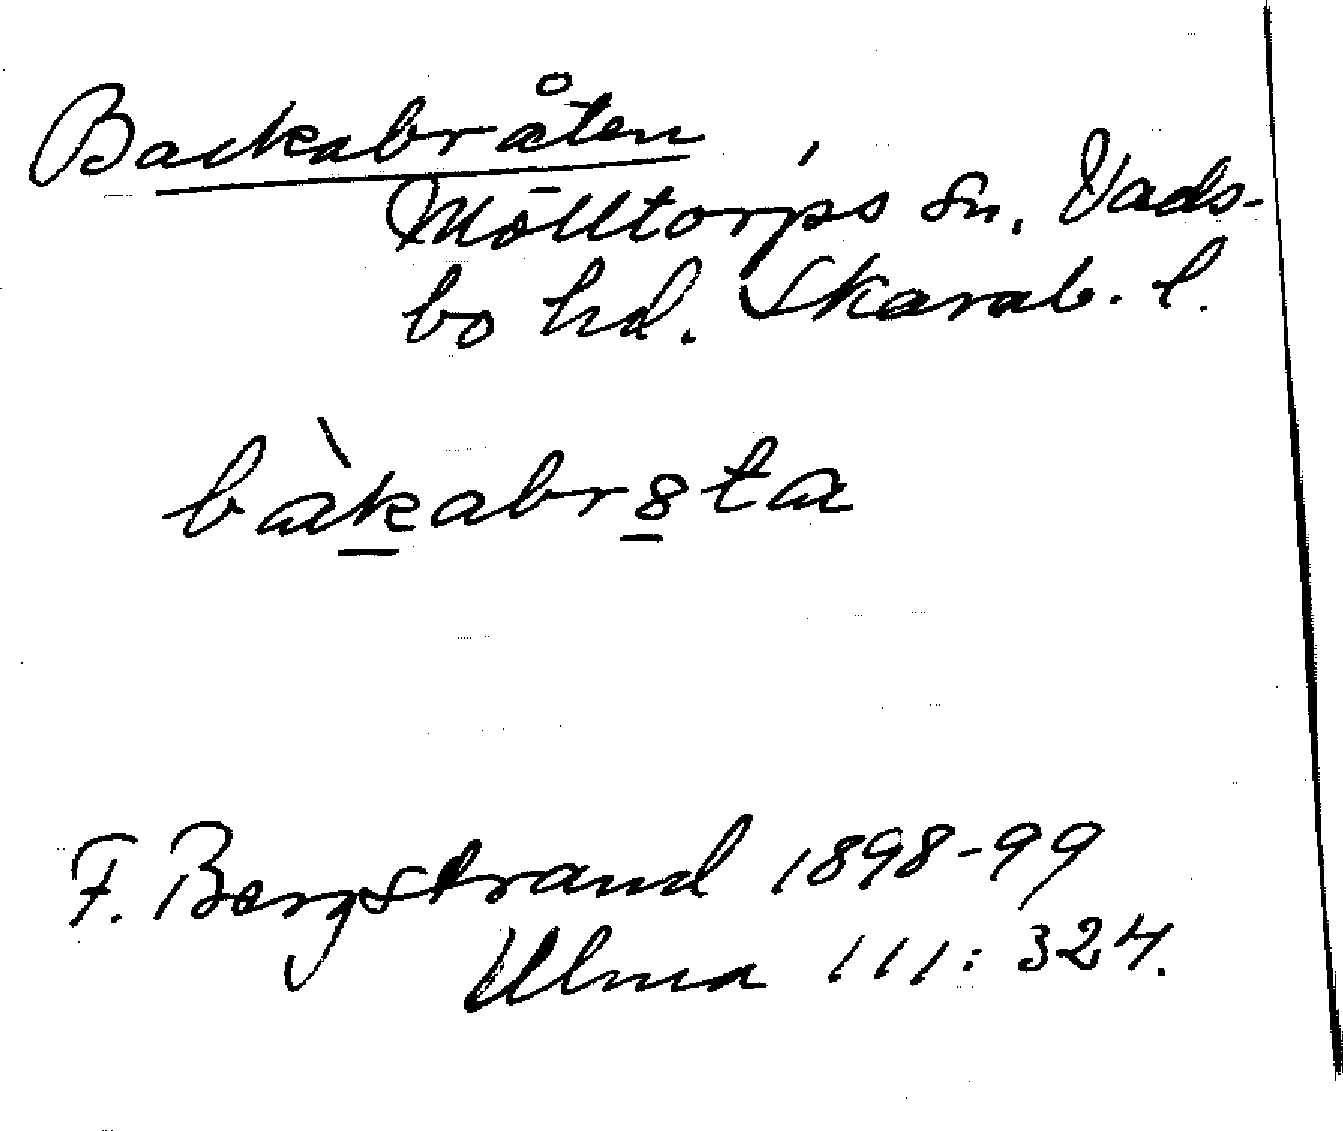 Backabråten
Mölltorps sn. Vads-
bo hd. Skarab. l.
bàkabr8ta
F. Bergstrand 1898-99
Ulma 111:324.